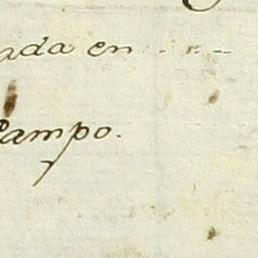 ada en
Campo.